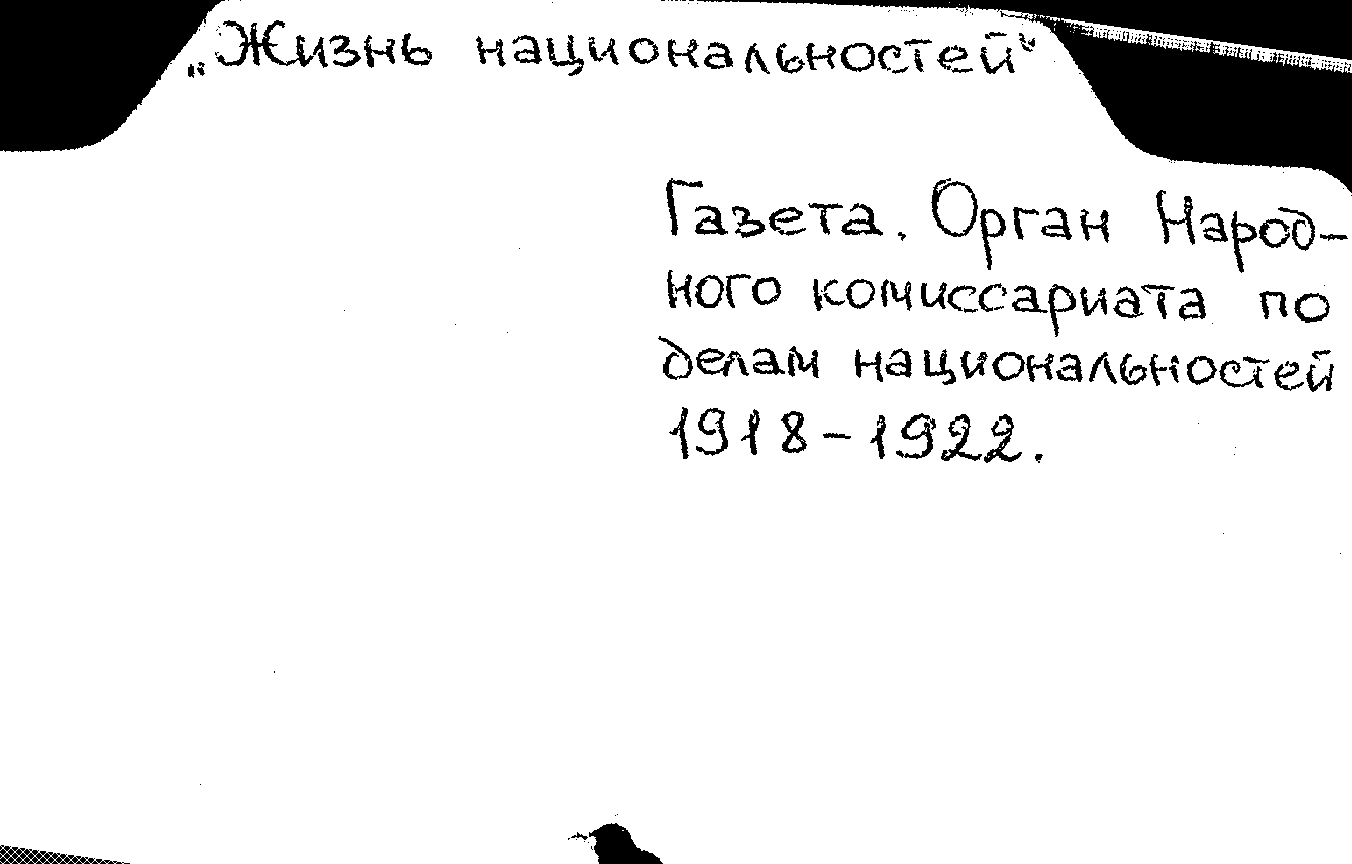 „Жизнь национальностей“
Газета. Орган Народ-
ного комиссариата по
делам национальностей
1918-1922.